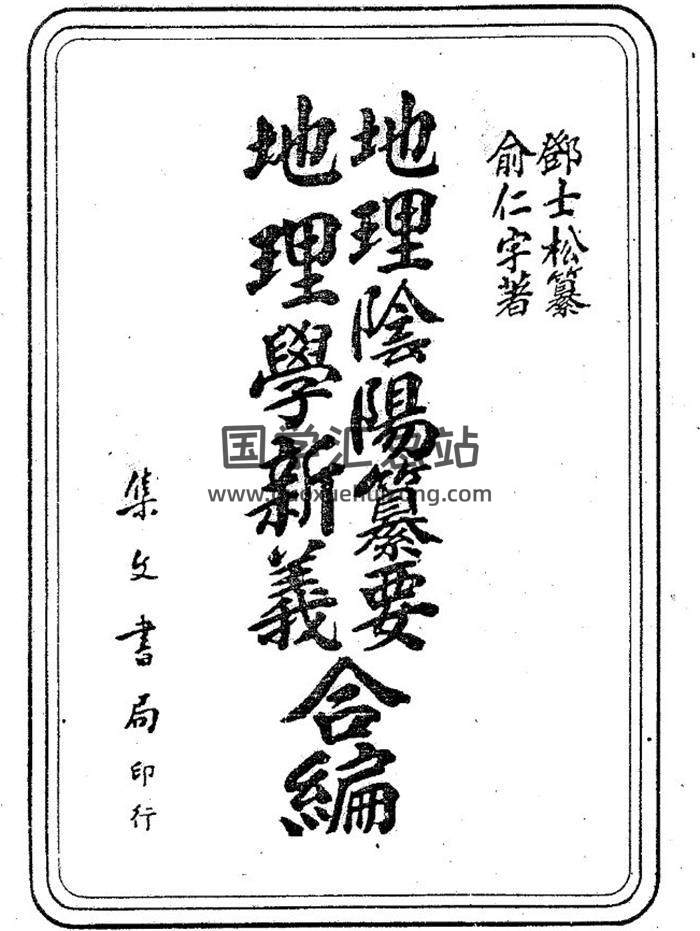 鄧士松纂
俞仁宇著
地理陰陽纂要
地理學新義
合編
集文書局印行
国学汇典站